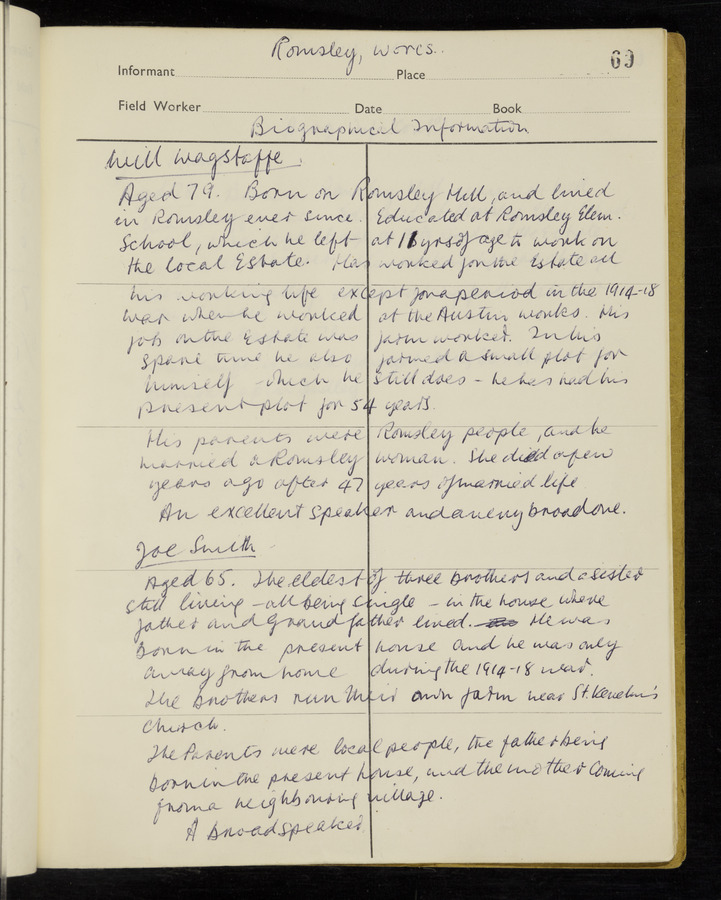 Romsley, Worcs.
69
Informant Place
Field Worker Date Book
Biographical Information
Will Wagstaffe.
Aged 79. Born on Romsley Hill, and lived
in Romsley ever since. Educated at Romsley Elem.
School, which he left at 11 yrs of age to work on
the local Estate. Has worked for the Estate all
his working life except for a period in the 1914-18
war when he worked at the Austin works. His
job on the Estate was farm worker. In his
spare time he also farmed a small plot for
himself which he still does - he has had his
present plot for 54 years.
His parents were Romsley people, and he
married a Romsley woman. She died a few
years ago after 47 years of married life
An excellent speaker and a very broad one.
Joe Smith
Aged 65. The eldest of three brothers and a sister
still living - all being single - in the house where
father and Grandfather lived. He was
born in the present house and he was only
away from home during the 1914-18 war.
The brothers run their own farm near St. Kenelm's
Church.
The Parents were local people, the father being
born in the present house, and the mother coming
from a neighbouring village.
A broad speaker